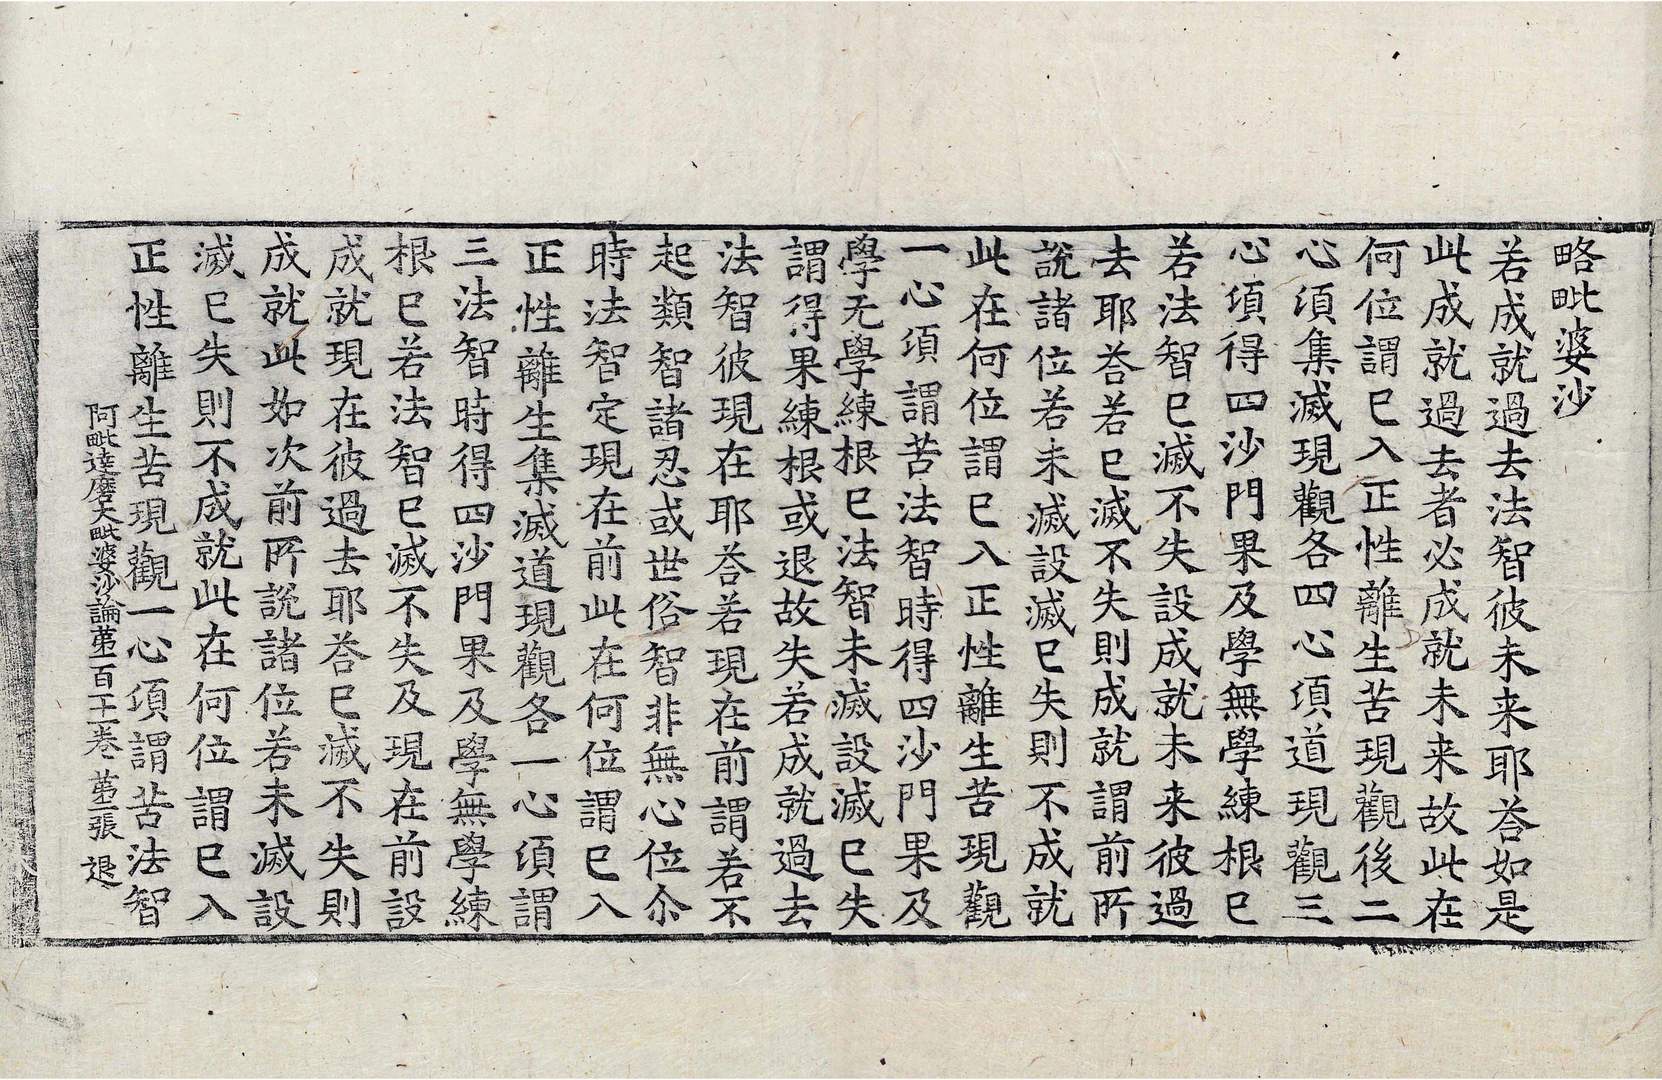 略毗婆沙
若成就過去法智彼未来耶荅如是
此成就過去者必成就未来故此在
何位謂已入正性離生苦現觀後二
心湏集滅現觀各四心湏道現觀三
心湏得四沙門果及學無學練根已
若法智已滅不失設成就未来彼過
去耶荅若已滅不失則成就謂前所
說諸位若未滅設滅已失則不成就
此在何位謂已入正性離生苦現觀
一心湏謂苦法智時得四沙門果及
學无學練根已法智未滅設滅已失
謂得果練根或退故失若成就過去
法智彼現在耶荅若現在前謂若不
起類智諸忍或世俗智非無心位尒
時法智定現在前此在何位謂已入
正性離生集滅道現觀各一心湏謂
三法智時得四沙門果及學無學練
根已若法智已滅不失及現在前設
成就現在彼過去耶荅已滅不失則
成就此如次前所說諸位若未滅設
滅已失則不成就此在何位謂已入
正性離生苦現觀一心湏謂苦法智
阿毗達磨大毗婆沙論苐一百一十一卷 苐二張 退